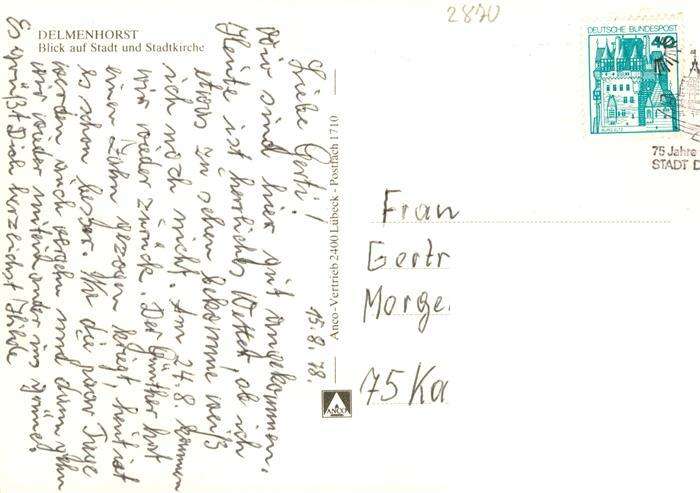 2870
DELMENHORST
Blick auf Stadt und Stadtkirche
Liebe Gerti!
Wir sind hier gut angekommen.
Heute ist herrliches Wetter, ob ich
etwas zu sehen bekomme, weiß
ich noch nicht. Am 24.8. kommen
wir wieder zurück. Der Günther hat
einen Zahn gezogen kriegt, heut ist
es schon besser. Ihr die paar Tage
werden auch vergehn und dann gehn
wir wieder miteinander ins
Es grüßt Dich herzlichst
15.8.78.
Anco-Vertrieb 2400 Lübeck - Postfach 1710
ANCO
DEUTSCHE BUNDESPOST
40
BURG ELTZ
75 Jahre
STADT D
Frau
Gertr
Morge
75 Ka